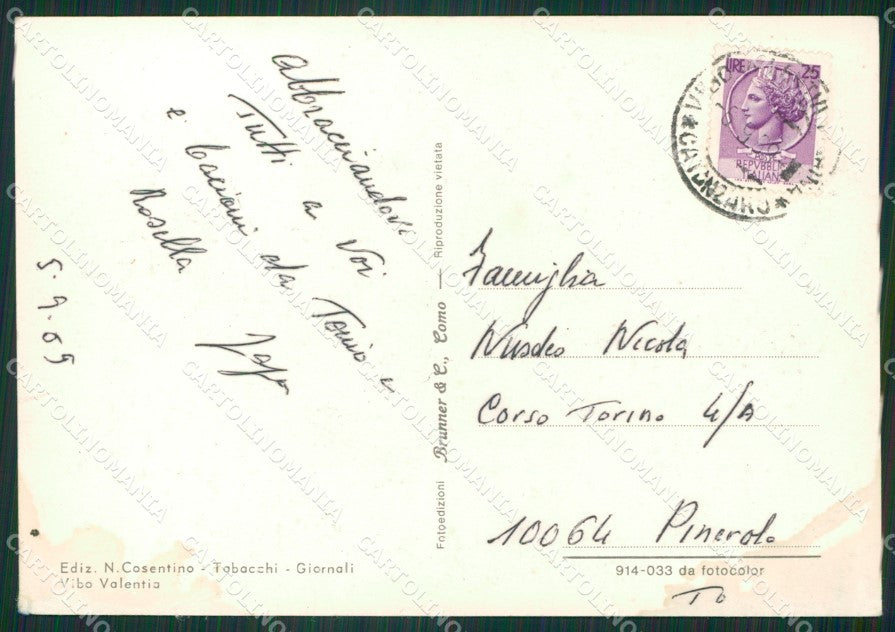 Abbracciandovi
Tutti a Voi
e Bacioni da Tonio e
Rosella
5.9.69
Ediz. N. Cosentino - Tabacchi - Giornali
Vibo Valentia
Fotoedizioni Brunner & C., Como — Riproduzione vietata
LIRE 25
REPVBBLICA
ITALIANA
Famiglia
Nicola
Corso Torino 4/A
10064 Pinerolo
914-033 da fotocolor
To
CARTOLINOMANIA